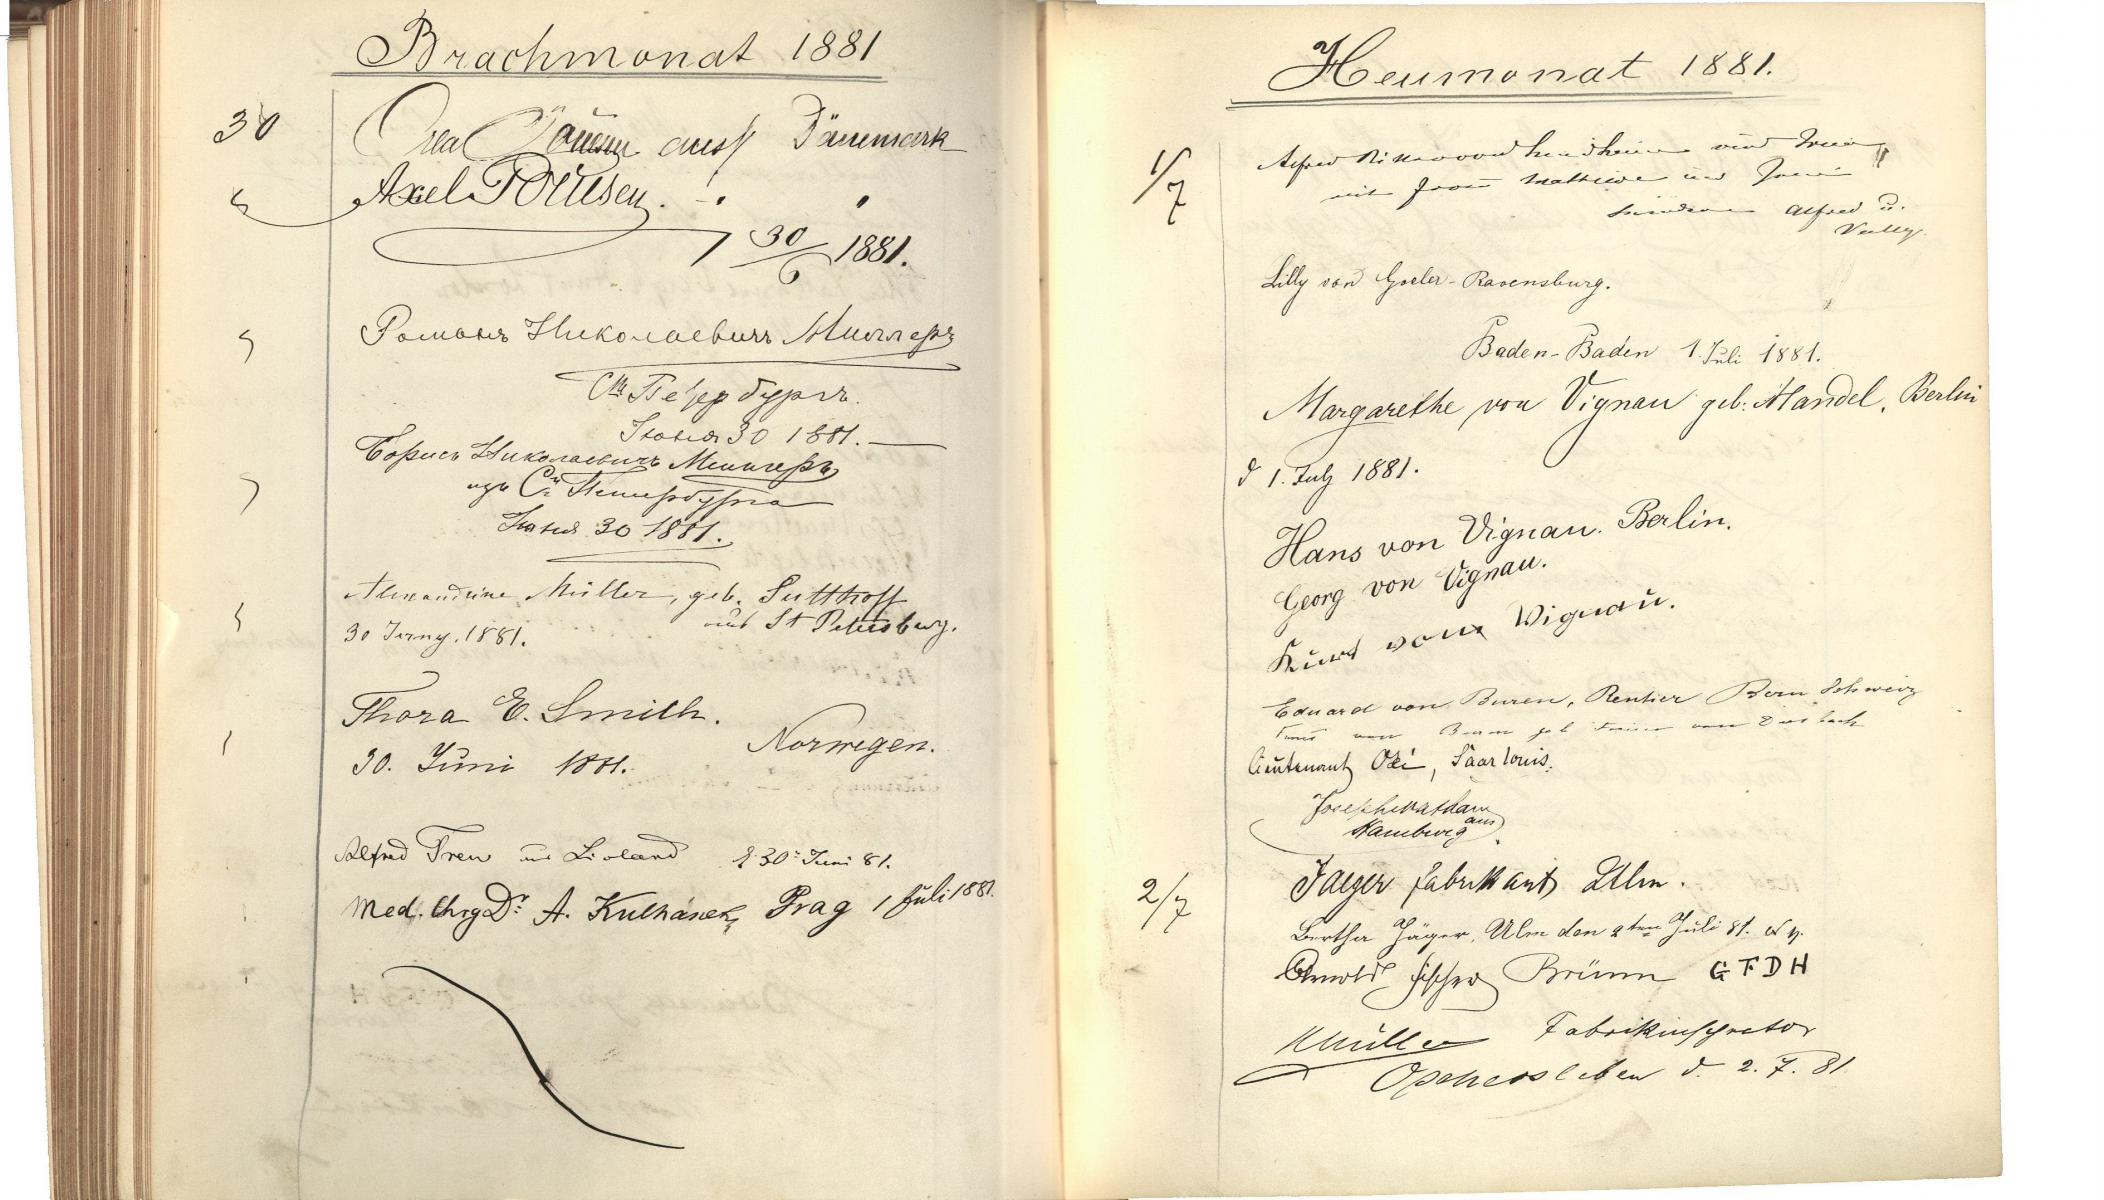 Brachmonat 1881
30
auss Dänemark
Axel Poulsen. " "
30/6 1881.
Романъ Николаевичъ Миллеръ
Ст Петербургъ.
Iюня 30 1881.
Борисъ Николаевичъ Миллеръ
изъ Ст Петербурга
Iюня 30 1881.
Alexandrine Müller, geb. Sutthoff
aus St Petersburg.
30 Juny. 1881.
Thora E. Smith.
Norwegen.
30. Juni 1881.
Alfred Treu aus Livland d. 30. Juni 81.
Med. Chrg Dr. A. Kulhánek, Prag 1 Juli 1881.
Heumonat 1881.
1/7
Alfred und
mit
Alfred u.
Lilly von Goeler-Ravensburg.
Baden-Baden 1. Juli 1881.
Margarethe von Vignau geb: Mandel, Berlin
d 1. July 1881.
Hans von Vignau. Berlin.
Georg von Vignau.
Kurt von Vignau.
Eduard von Buren, Rentier Bern Schweiz
von Buren geb von
Lieutenant, Saarlouis.
aus
Hamburg
2/7
Jaeger Fabrikant Ulm.
Bertha Jäger, Ulm den 2ten Juli 81.
Arnold Fischer Brünn G F D H
Müller Fabrikinspector
d. 2. 7. 81